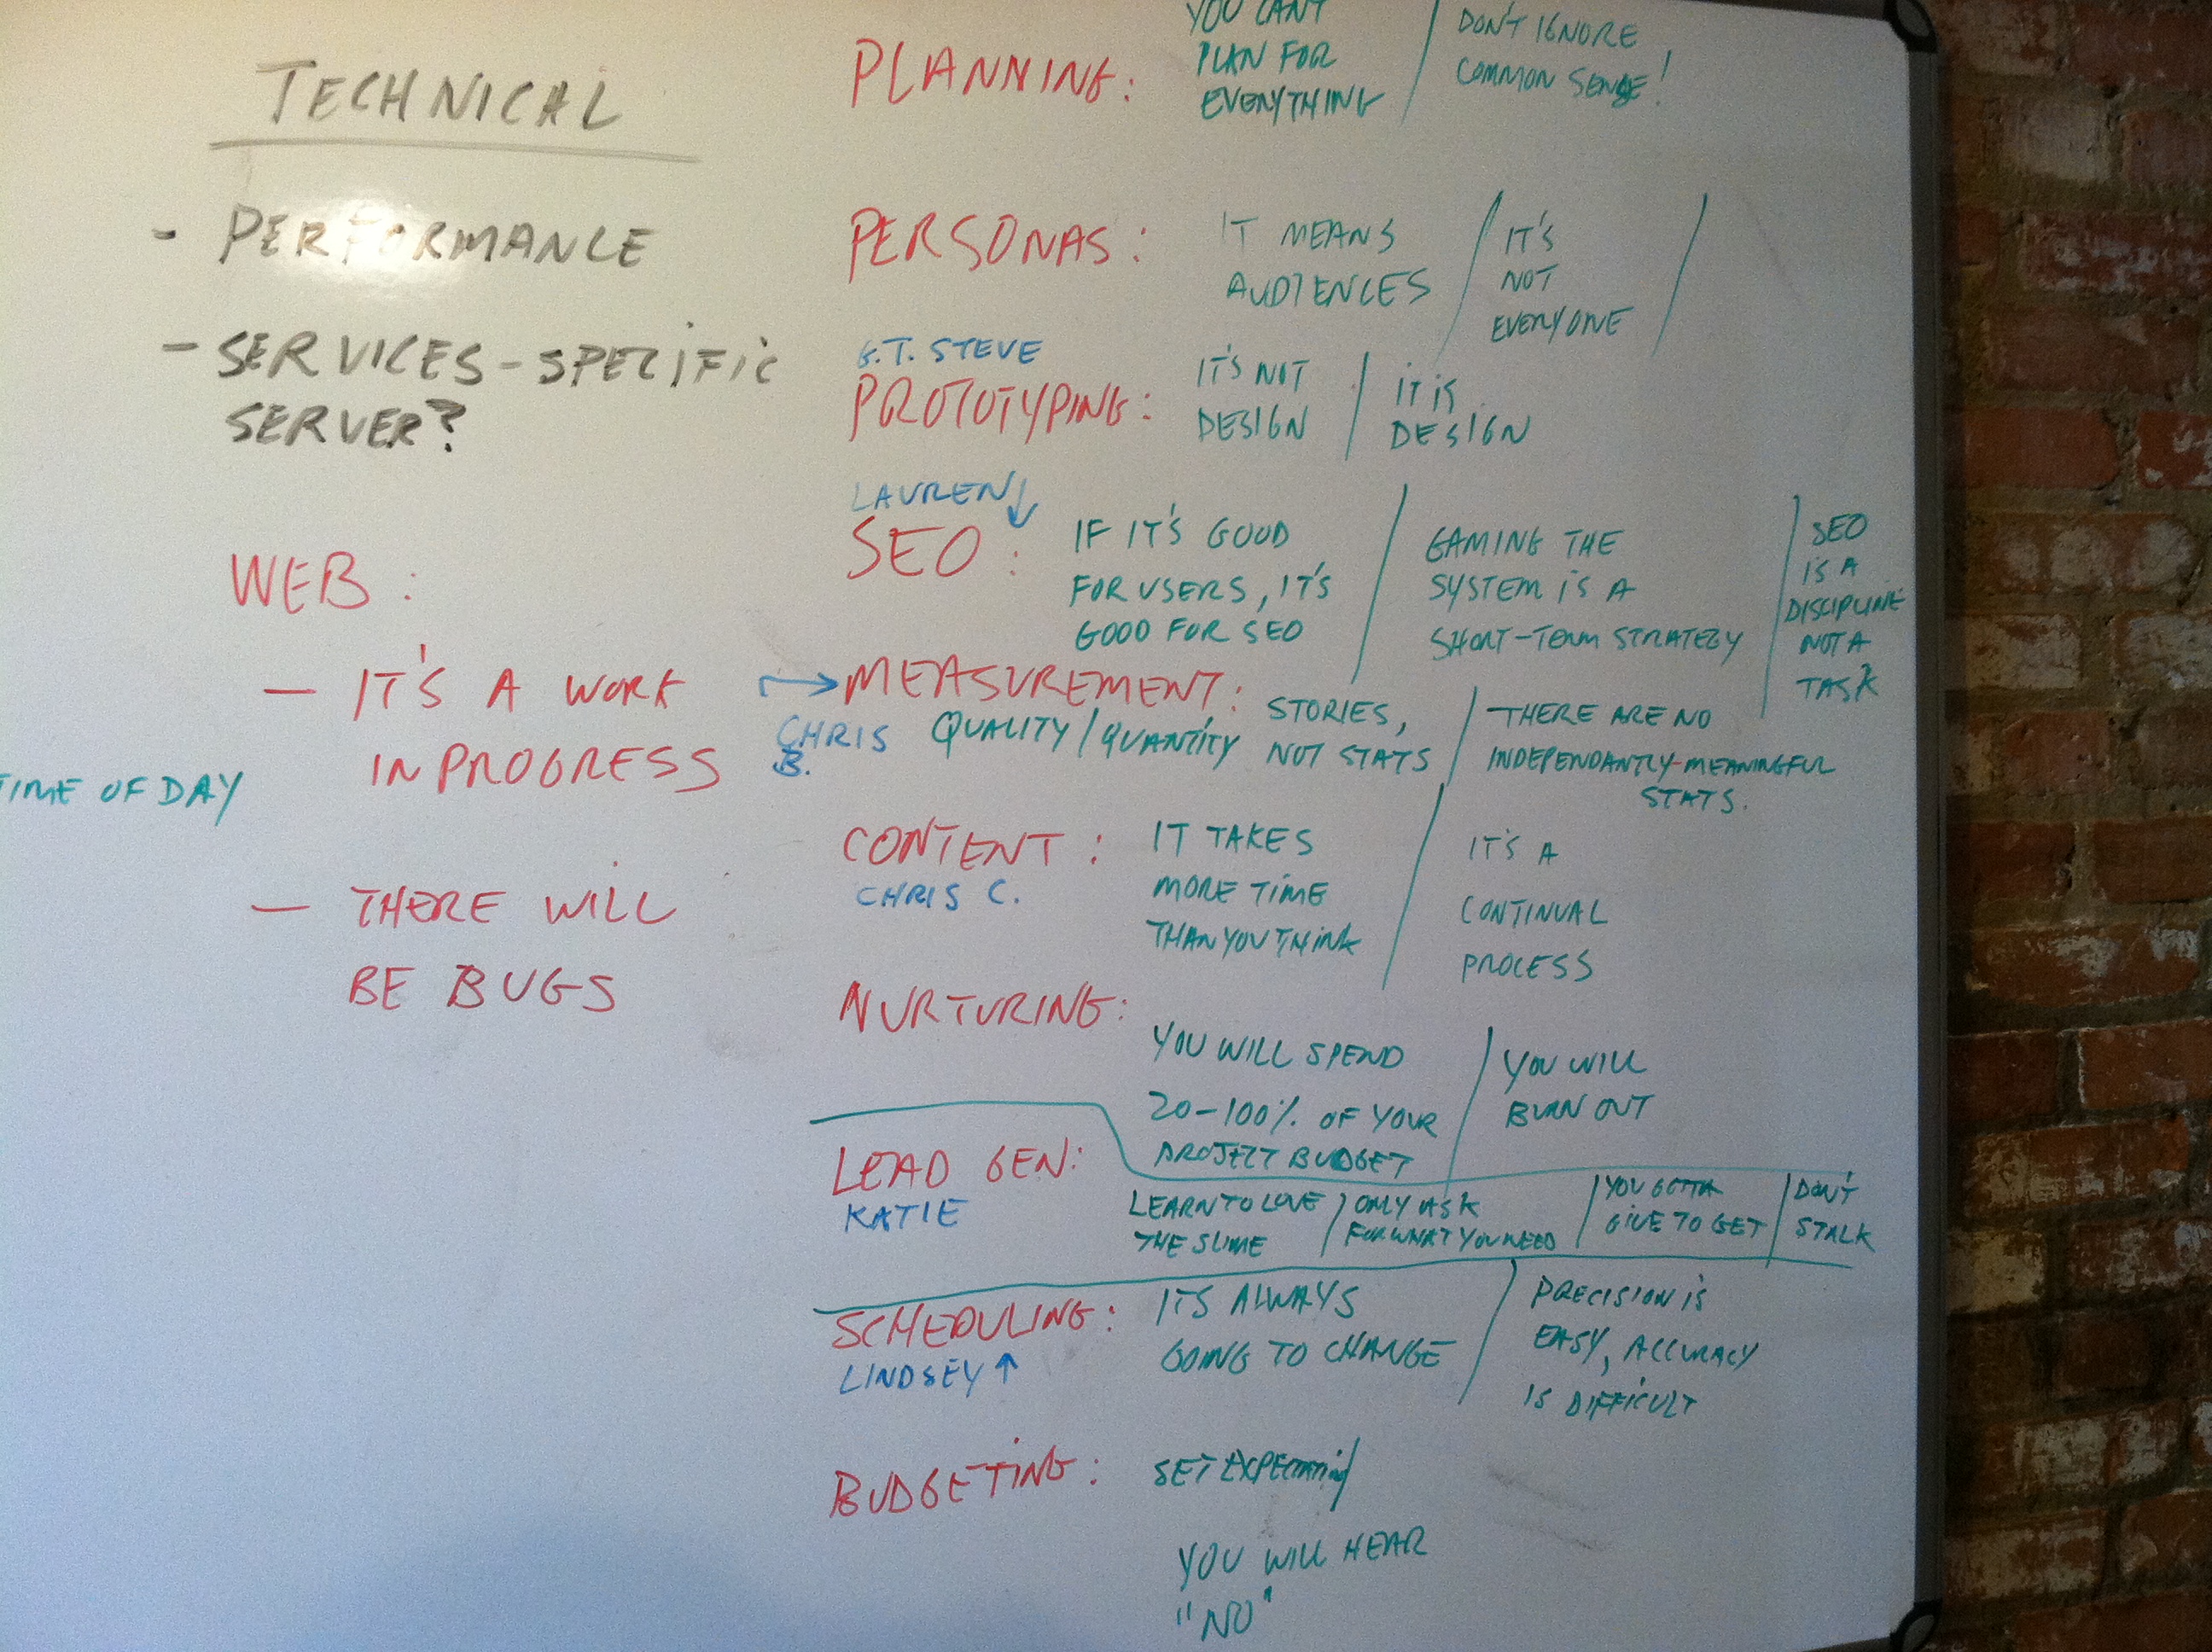 TECHNICAL
- PERFORMANCE
- SERVICES-SPECIFIC
SERVER?
WEB:
- IT'S A WORK
IN PROGRESS
TIME OF DAY
- THERE WILL
BE BUGS
PLANNING:
YOU CAN'T
PLAN FOR
EVERYTHING
DON'T IGNORE
COMMON SENSE!
PERSONAS:
IT MEANS
AUDIENCES
IT'S
NOT
EVERYONE
G.T. STEVE
PROTOTYPING:
IT'S NOT
DESIGN
IT IS
DESIGN
LAUREN
SEO:
IF IT'S GOOD
FOR USERS, IT'S
GOOD FOR SEO
GAMING THE
SYSTEM IS A
SHORT-TERM STRATEGY
SEO
IS A
DISCIPLINE
NOT A
TASK
MEASUREMENT:
CHRIS
B.
QUALITY/QUANTITY
STORIES,
NOT STATS
THERE ARE NO
INDEPENDANTLY-MEANINGFUL
STATS.
CONTENT:
CHRIS C.
IT TAKES
MORE TIME
THAN YOU THINK
IT'S A
CONTINUAL
PROCESS
NURTURING:
YOU WILL SPEND
20-100% OF YOUR
PROJECT BUDGET
YOU WILL
BURN OUT
LEAD GEN:
KATIE
LEARN TO LOVE
THE SLIME
ONLY ASK
FOR WHAT YOU NEED
YOU GOTTA
GIVE TO GET
DON'T
STALK
SCHEDULING:
LINDSEY
ITS ALWAYS
GOING TO CHANGE
PRECISION IS
EASY, ACCURACY
IS DIFFICULT
BUDGETING:
SET
YOU WILL HEAR
"NO"